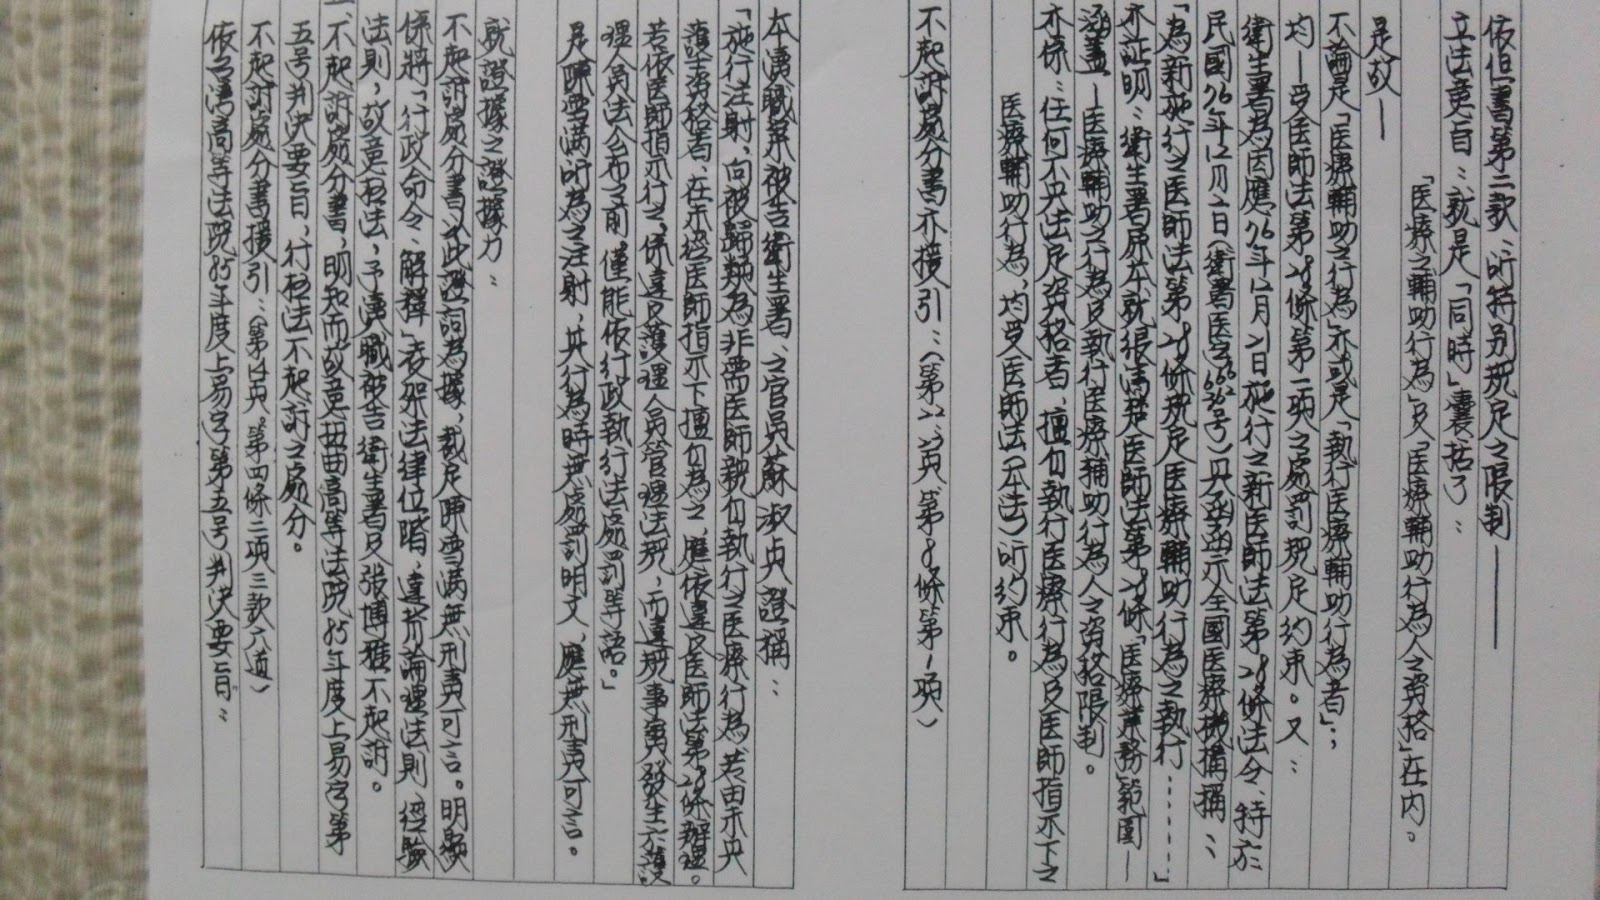 依但書第二款：所特別規定之限制——
立法意旨：就是「同時」囊括了：
「医療之輔助行為」及「医療輔助行為人之資格」在內。
是故——
不論是「医療輔助之行為」亦或是「執行医療輔助行為者」；
均—受医師法第28條第一項之處罰規定約束。又：
衛生署為因應76年12月21日施行之新医師法第28條法令、特於
民國76年12月2日(衛署医字 號)再函函示全國医療機構稱：
「為新施行之医師法第28條規定医療輔助行為之執行………」
亦証明：衛生署原本就很清楚医師法第28條「医療業務」範圍—
涵蓋—医療輔助之行為及執行医療輔助行為人之資格限制。
亦係：任何不具法定資格者、擅自執行医療行為及医師指示下之
医療輔助行為、均受医師法(本法)所約束。
不起訴處分書亦援引：(第22頁第8條第一項)
本瀆職案被告衛生署、之官員蘇淑貞證稱：
「施行注射，向被歸類為非需医師親自執行之医療行為，若由未具
護士資格者、在未經医師指示下擅自為之，應依違反医師法第28條辦理。
若依医師指示行之，係違反護理人員管理法規，而違規事實發生於護
理人員法公布之前，僅能依行政執行法處罰等語。」
是陳雪满所為之注射，其行為時無處罰明文，應無刑責可言。
就證據之證據力：
不起訴處分書以此證詞為據，裁定陳雪满無刑責可言。明顯
係將「行政命令、解釋」表架法律位階，違背論理法則、經驗
法則，故意枉法，予瀆職被告衛生署長張博雅不起訴。
不起訴處分書，明知而故意扭曲高等法院85年度上易字第
五号判決要旨，行枉法不起訴之處分。
不起訴處分書援引：(第12頁。第四條三項三款六道)
依台灣高等法院85年度上易字第五号判決要旨：